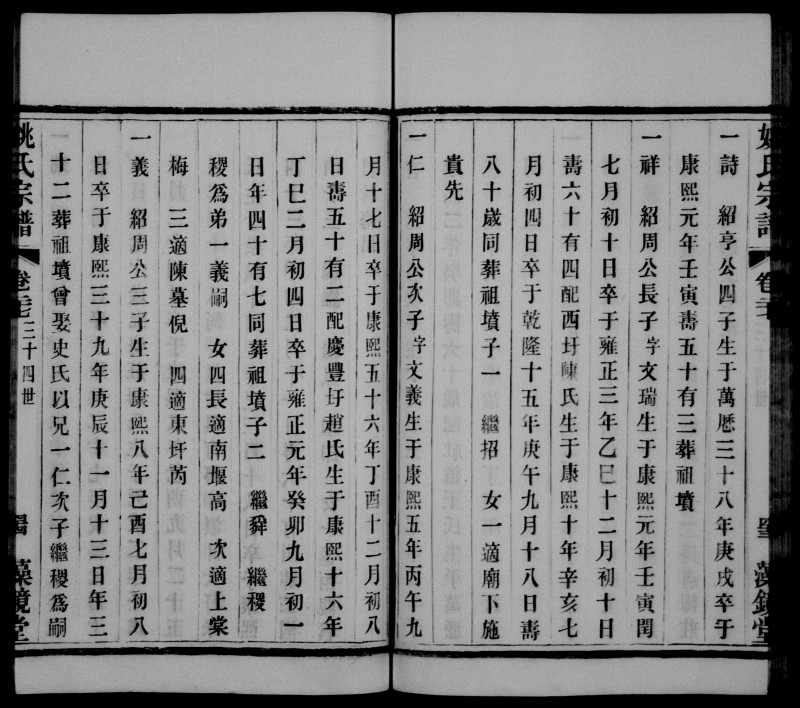 一詩　紹亨公四子生于萬曆三十八年庚戌卒于
康熙元年壬寅壽五十有三葬祖墳
一祥　紹周公長子字文瑞生于康熙元年壬寅閏
七月初十日卒于雍正三年乙巳十二月初十日
壽六十有四配西圩陳氏生于康熙十年辛亥七
月初四日卒于乾隆十五年庚午九月十八日壽
八十歲同葬祖墳子一　繼招　女一適廟下施
貴先
一仁　紹周公次子字文義生于康熙五年丙午九
月十七日卒于康熙五十六年丁酉十二月初八
日壽五十有二配慶豐圩趙氏生于康熙十六年
丁巳二月初四日卒于雍正元年癸卯九月初一
日年四十有七同葬祖墳子二　繼舜　繼稷
稷爲弟一義嗣　女四長適南堰高　次適上棠
梅　三適陳墓倪　四適東圩芮
一義　紹周公三子生于康熙八年己酉七月初八
日卒于康熙三十九年庚辰十一月十三日年三
十二葬祖墳曾娶史氏以兄一仁次子繼稷爲嗣
姚氏宗譜　卷　三十四世　藻鏡堂